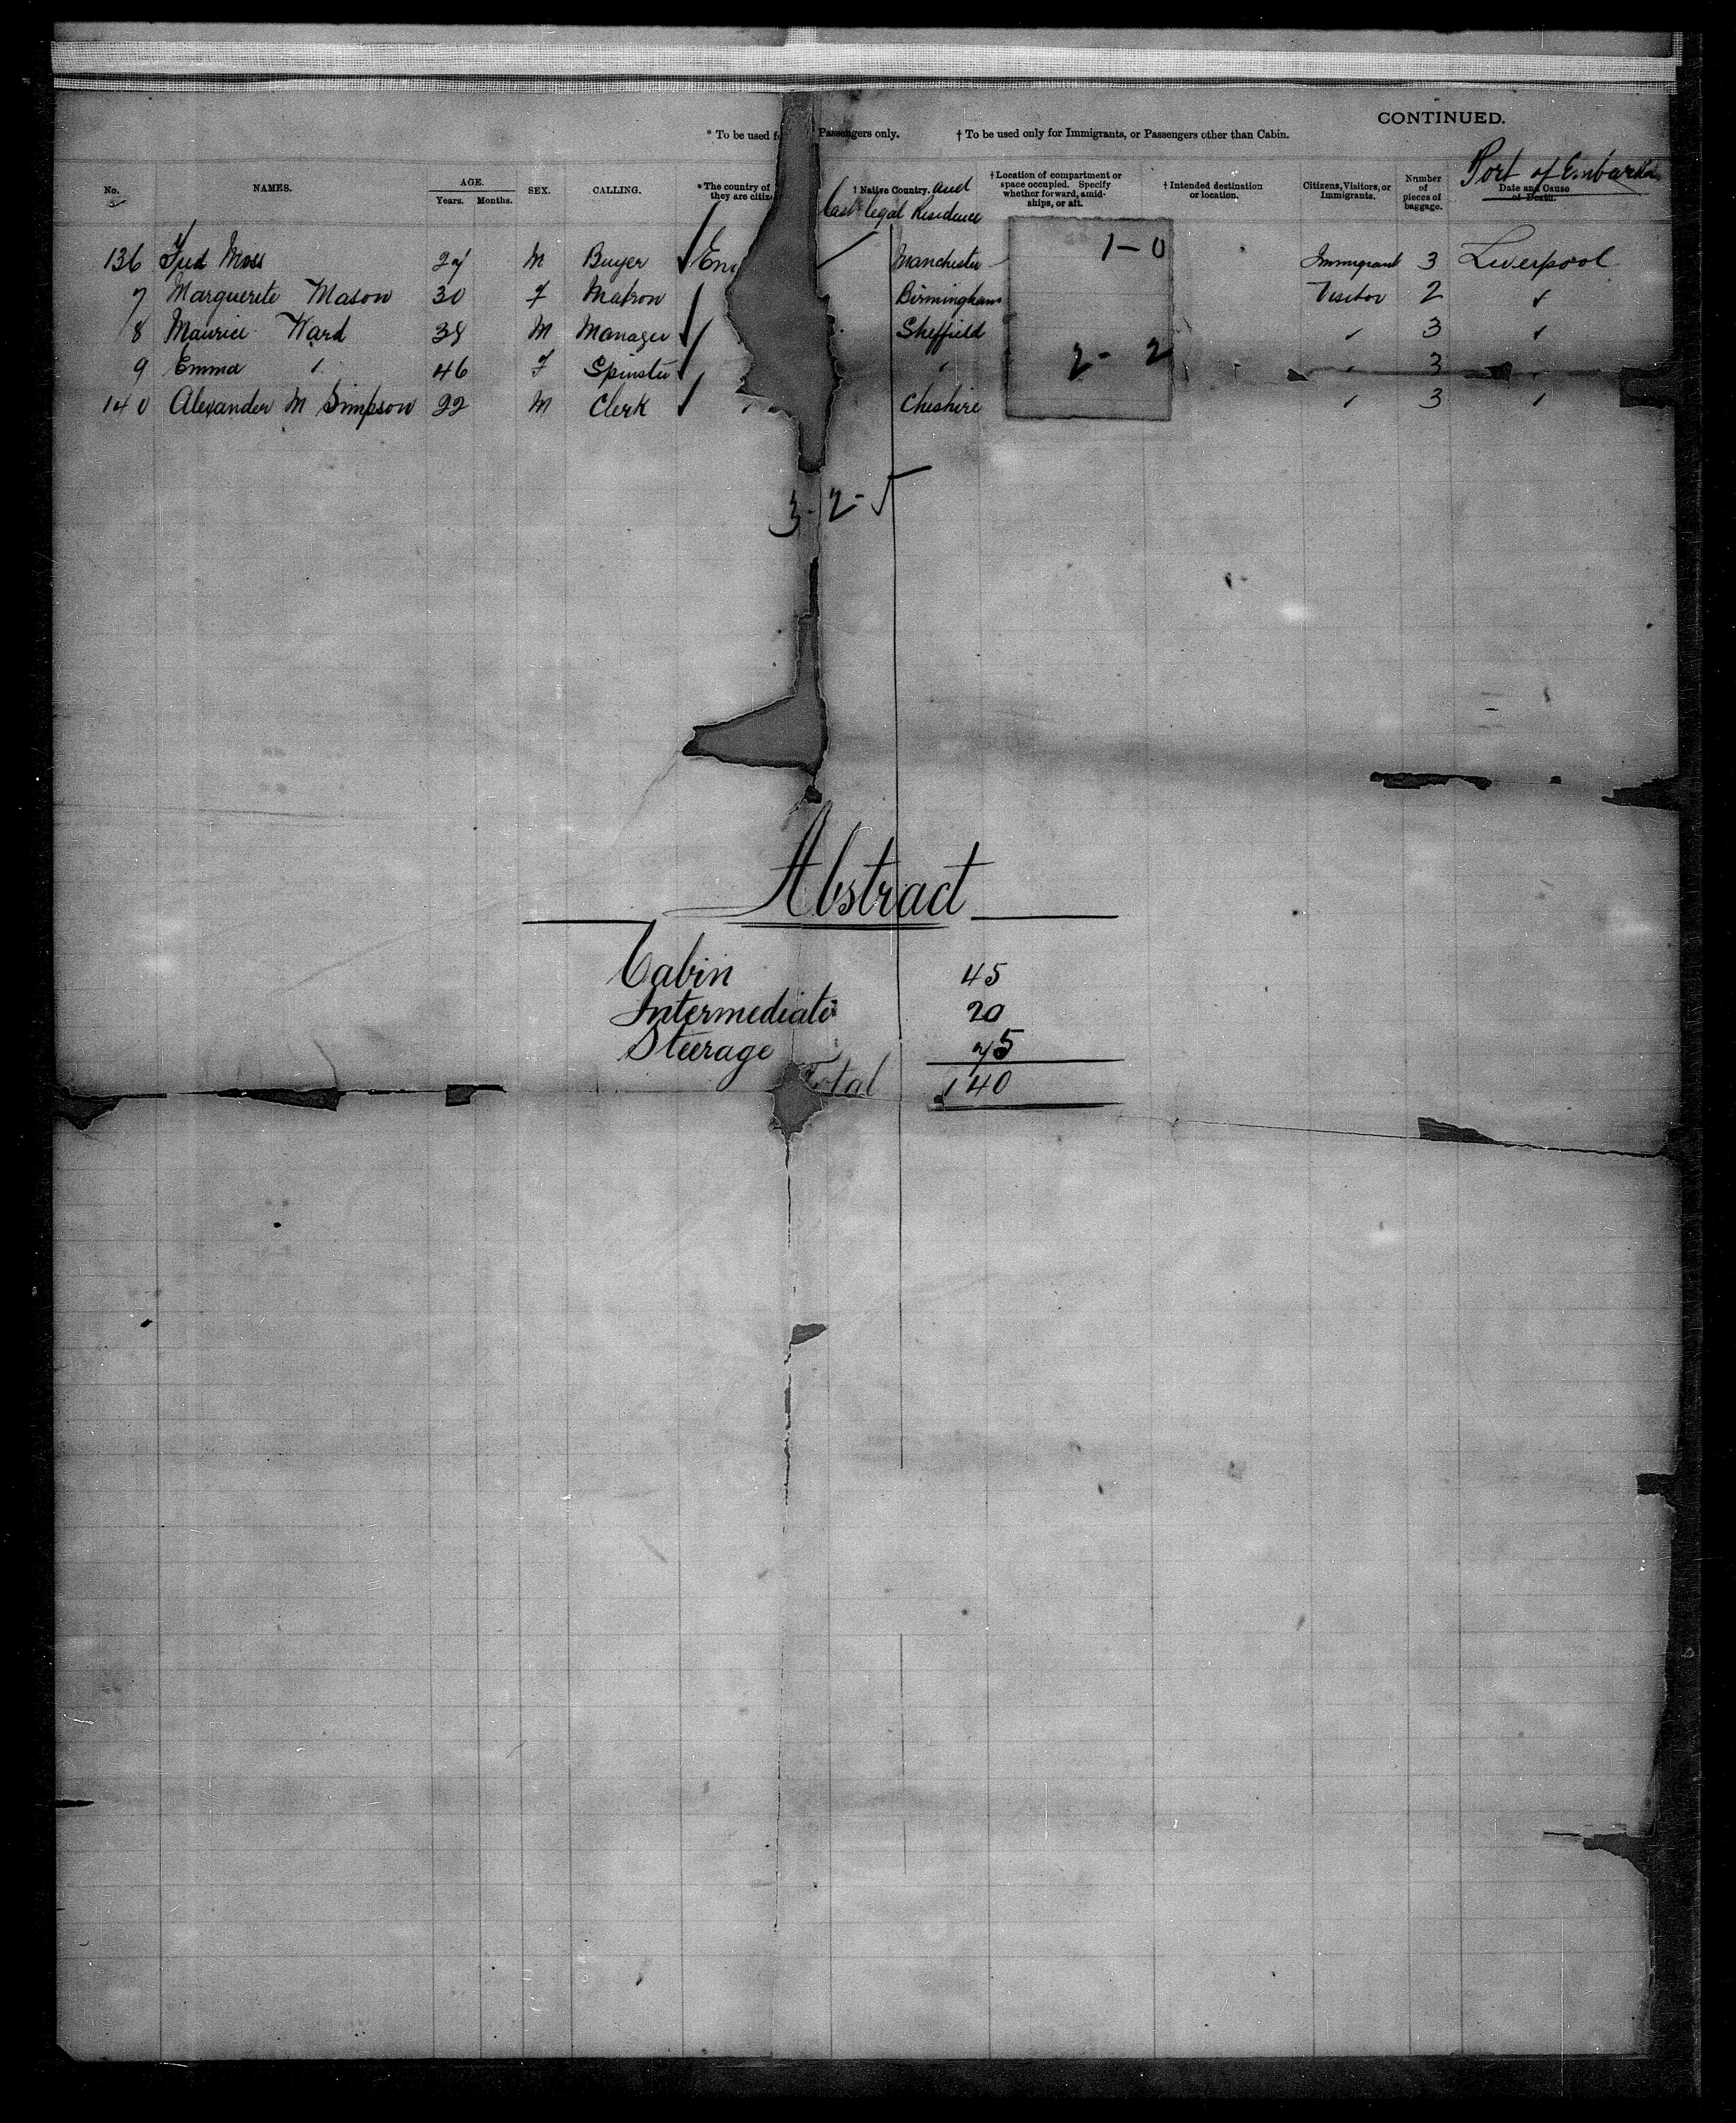 CONTINUED.
* To be used f Passengers only. † To be used only for Immigrants, or Passengers other than Cabin.
Port of Embarkn
No. NAMES. AGE. Years. Months. SEX. CALLING. * The country of they are citize † Native Country. and last legal Residence † Location of compartment or space occupied. Specify whether forward, amidships, or aft. † Intended destination or location. Citizens, Visitors, or Immigrants. Number of pieces of baggage. Date and Cause of Death.
136 Fred Moss 27 M Buyer Manchester 1-0 Immigrant 3 Liverpool
7 Marguerite Mason 30 F Matron Birmingham Visitor 2 "
8 Maurice Ward 38 M Manager Sheffield " 3 "
9 Emma " 46 F Spinster " 2-2 " 3 "
140 Alexander M Simpson 22 M Clerk " Cheshire " 3 "
3-2-5
Abstract
Cabin 45
Intermediate 20
Steerage 75
Total 140